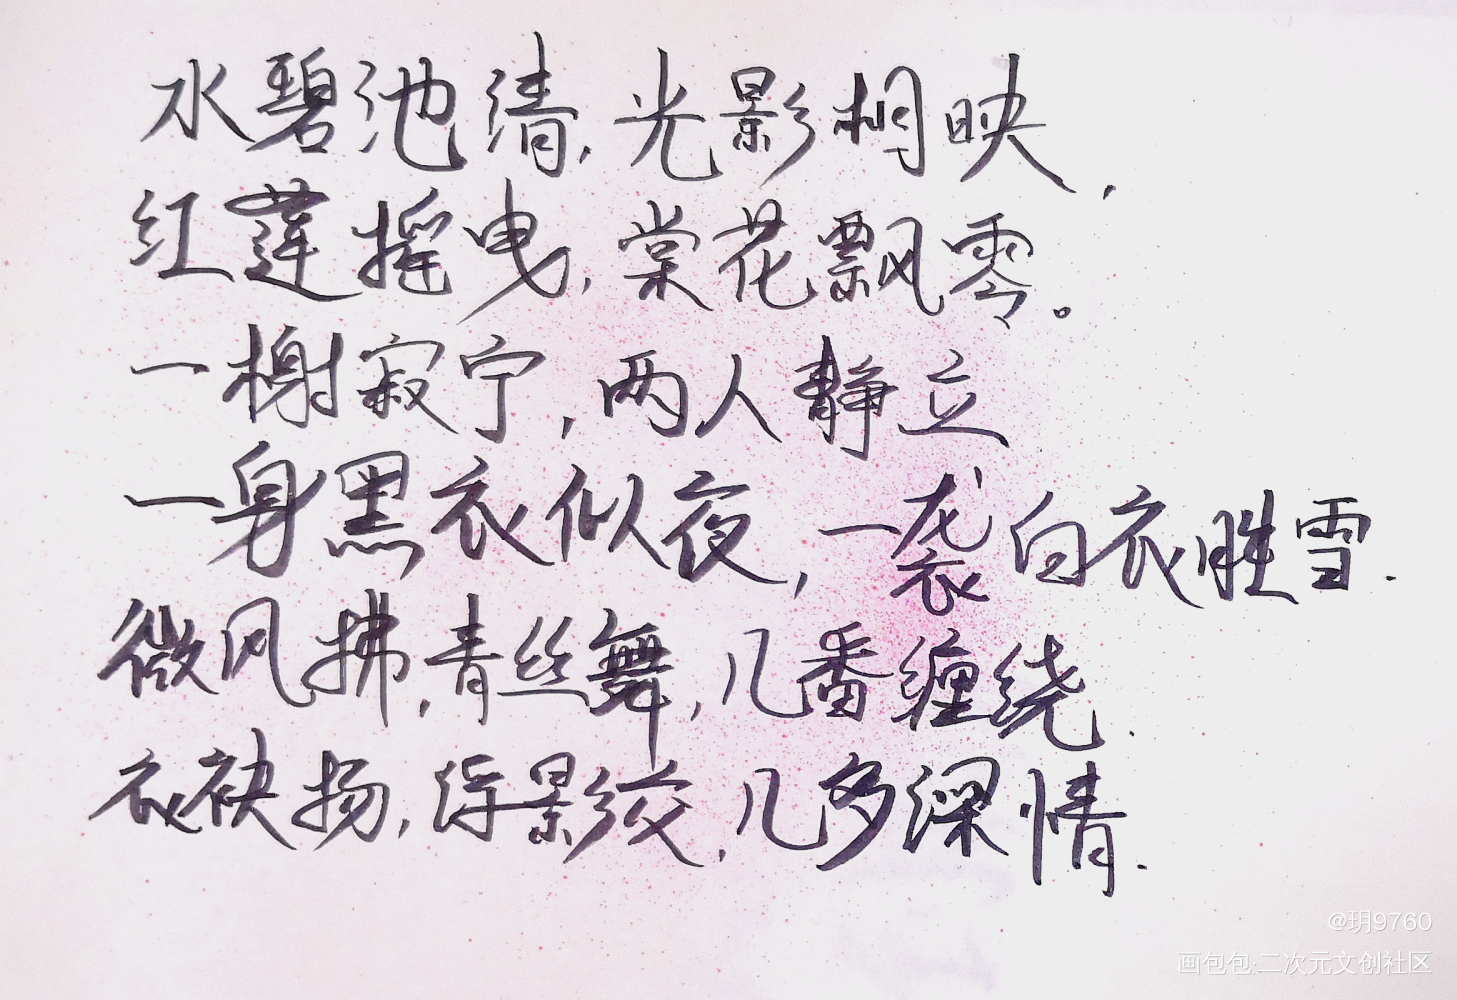 水碧池清,光影相映,
红莲摇曳,棠花飘零。
一榭寂宁,两人静立
一身黑衣似夜,一袭白衣胜雪.
微风拂,青丝舞,几番缠绕.
衣袂扬,浮影交,几多深情.
@玥9760
画包包·二次元文创社区